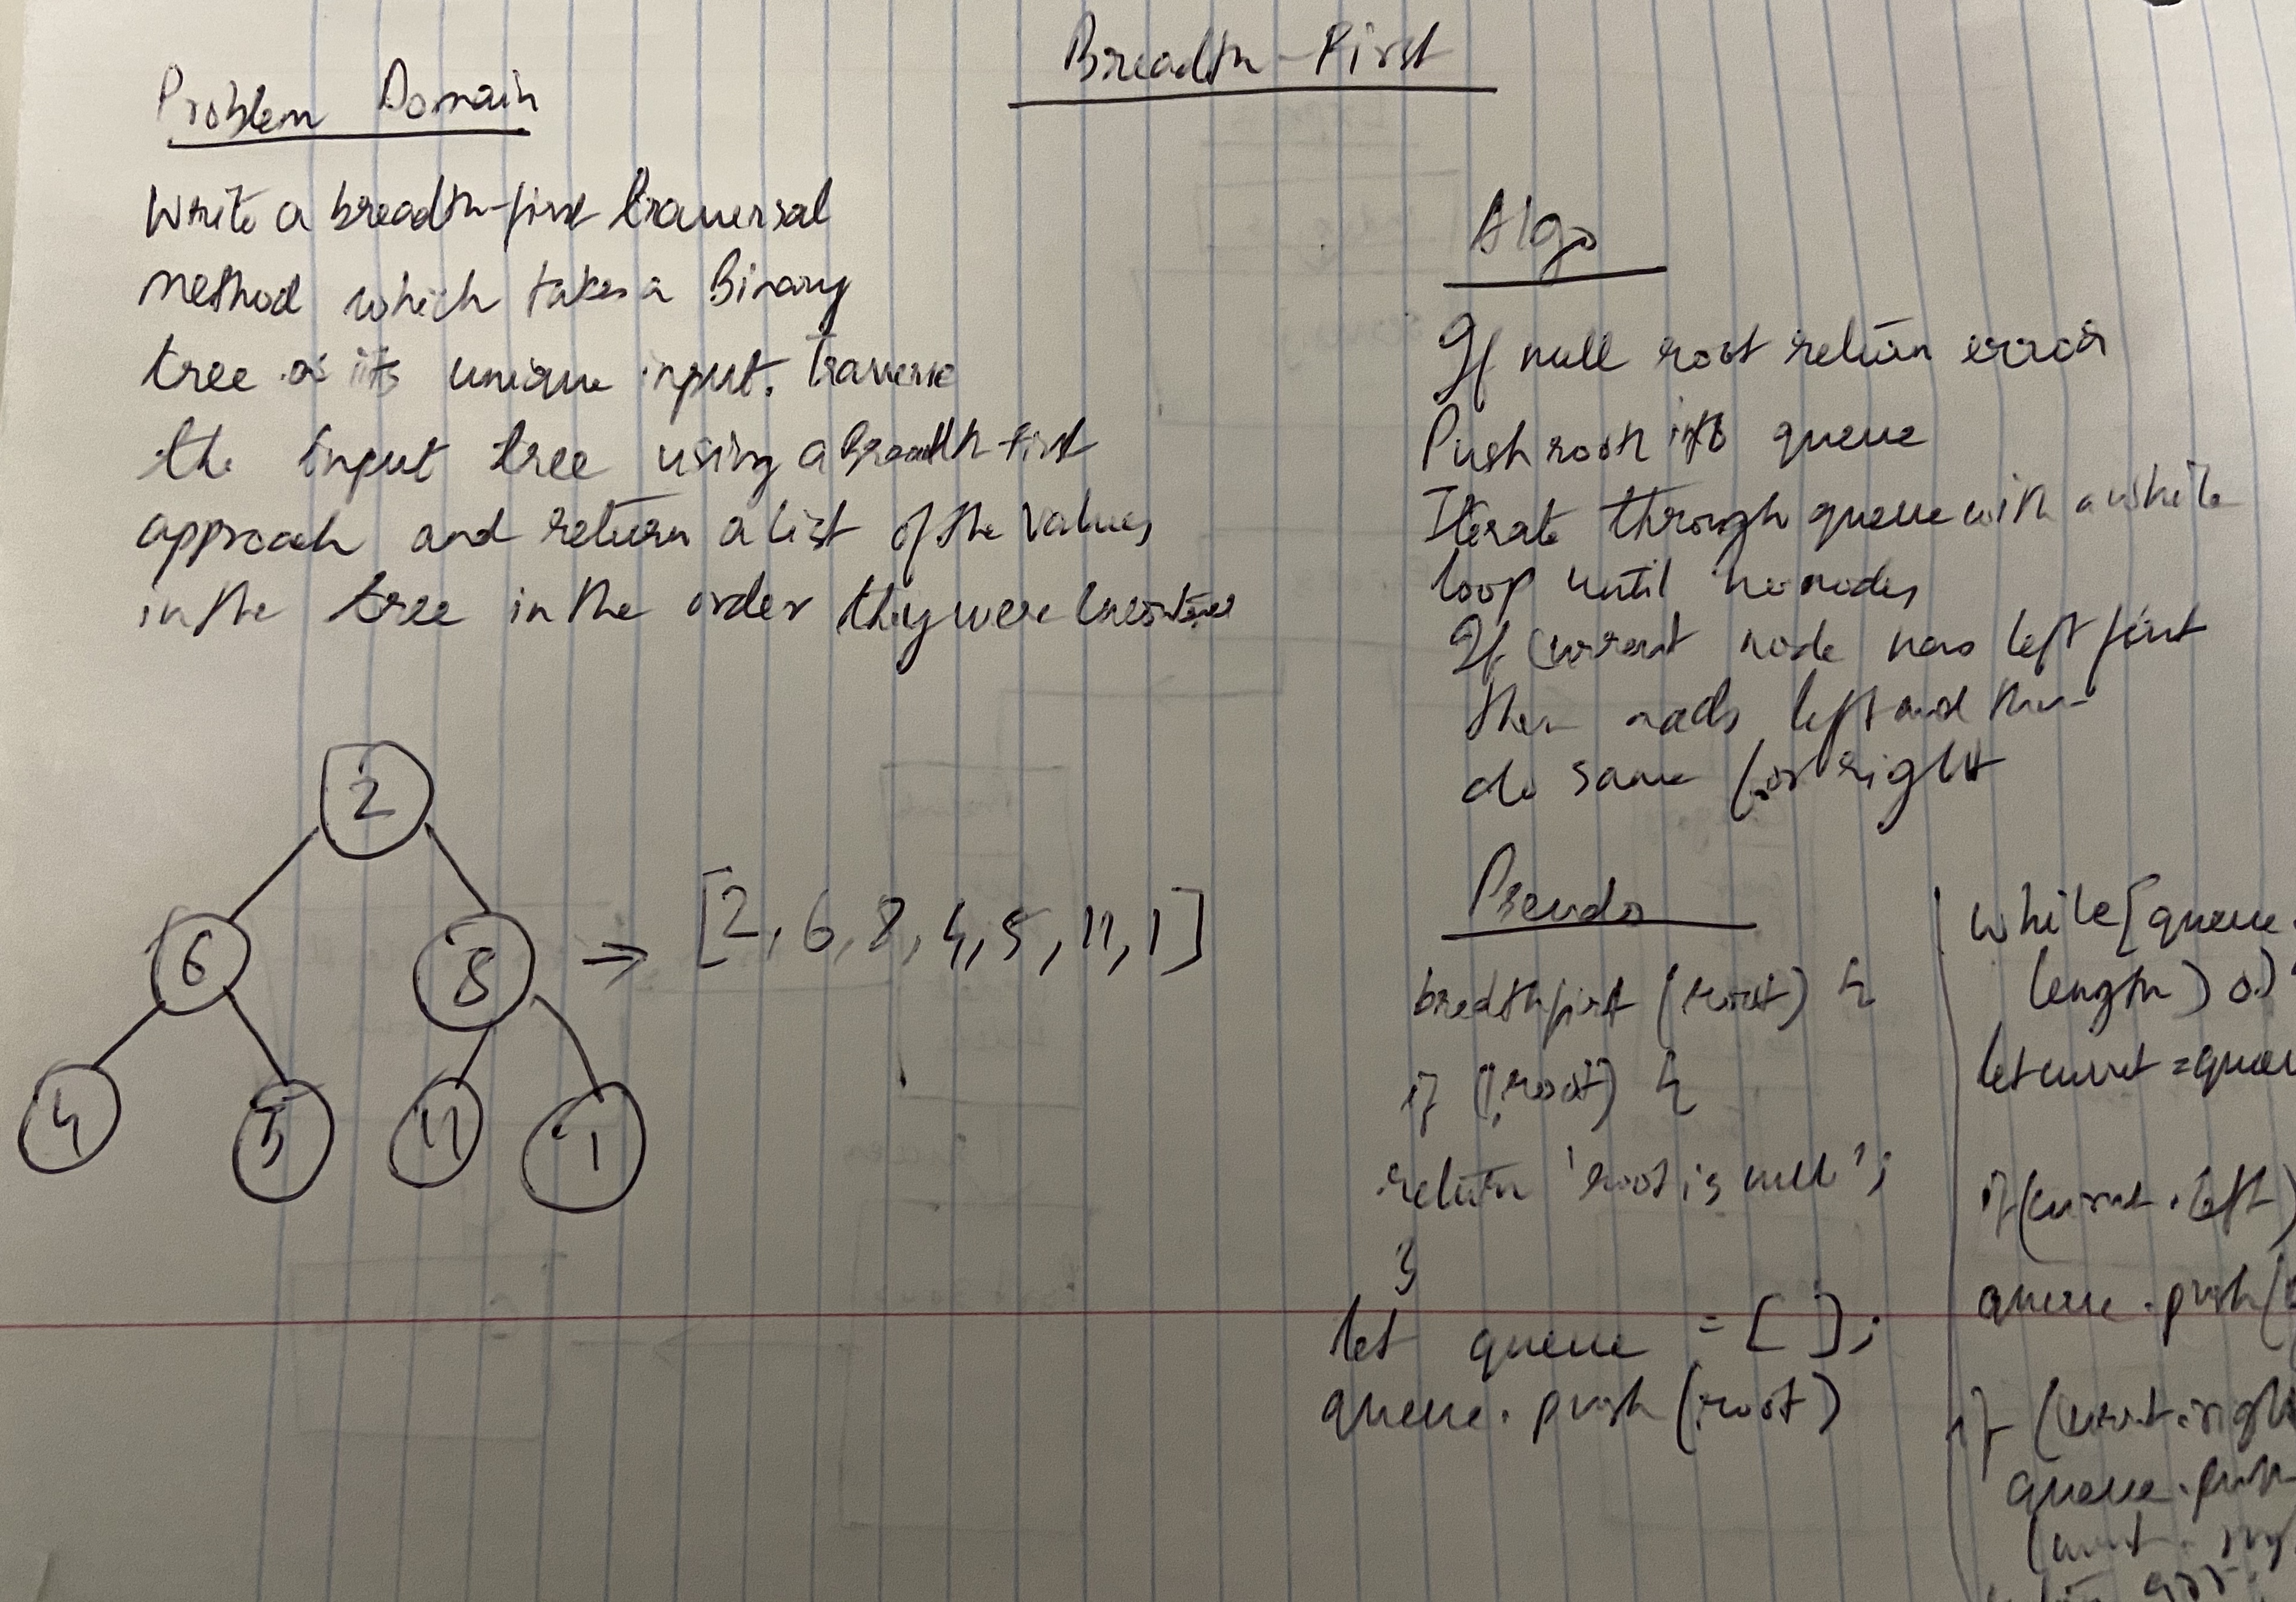 Breadth-First
Problem Domain
Write a breadth-first traversal
method which takes a Binary
tree as its unique input. Traverse
the input tree using a Breadth-first
approach and return a list of the values
in the tree in the order they were
Algo
If null root return error
Push root into queue
Iterate through queue with a while
loop until no nodes
If current node has left first
then nads left and then
do same for right
2
6
8
4
5
11
1
=> [2, 6, 8, 4, 5, 11, 1]
Pseudo
bredthfirst (root) {
if (!root) {
return 'root is null';
}
let queue = [ ];
queue.push (root)
while [queue.
length) 0)
let current = queu
if (current.left)
queue.push(
if (current.righ
queue.push
(current.